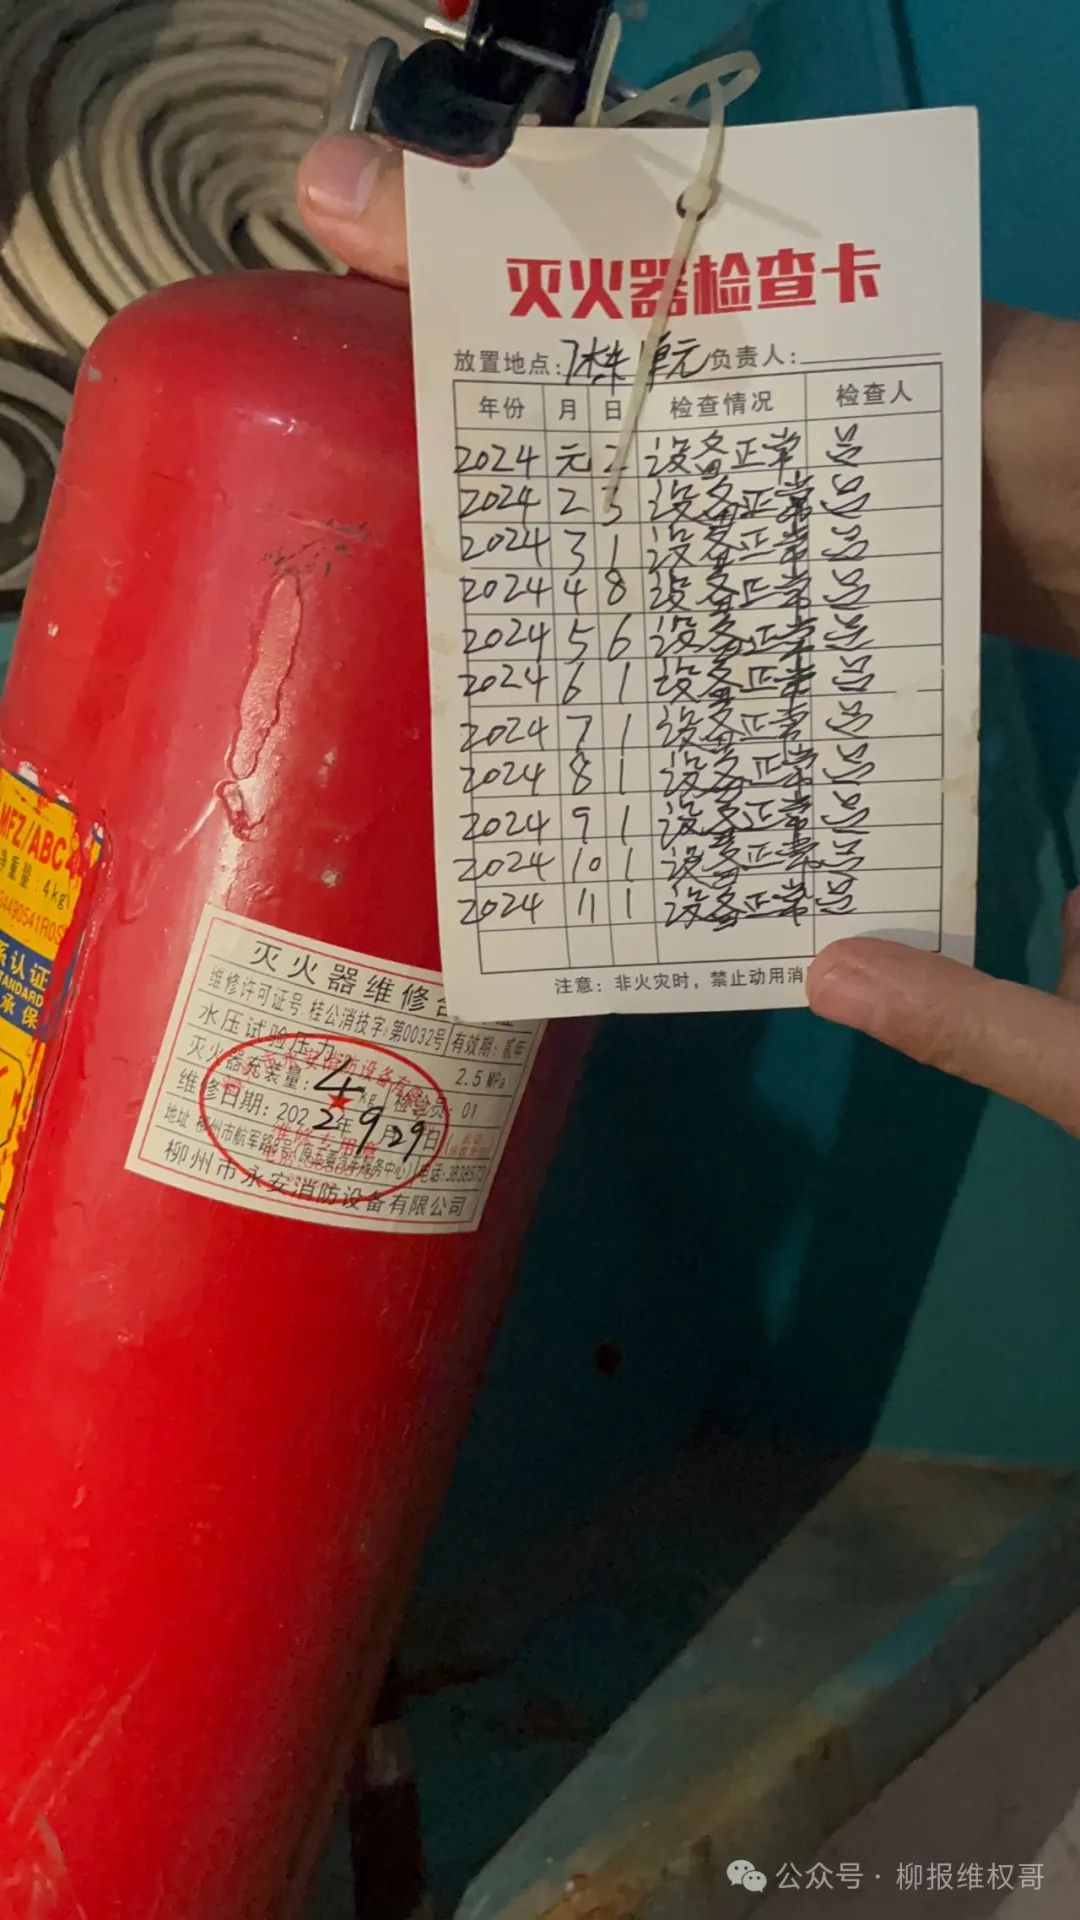 灭火器检查卡
放置地点:7栋1单元 负责人:
年份 月 日 检查情况 检查人
2024 元 2 设备正常
2024 2 3 设备正常
2024 3 1 设备正常
2024 4 8 设备正常
2024 5 6 设备正常
2024 6 1 设备正常
2024 7 1 设备正常
2024 8 1 设备正常
2024 9 1 设备正常
2024 10 1 设备正常
2024 11 1 设备正常
注意：非火灾时，禁止动用消
MFZ/ABC
净重量：4kg
04490541R0S
系认证
STANDARD
承保
灭火器维修合
维修许可证号:桂公消技字:第0032号 有效期：贰年
水压试验压力 2.5 MPa
灭火器充装量：4 kg 检验员：01
维修日期：2022年9月29日
地址 柳州市航军路8号
电话:3838573
柳州市永安消防设备有限公司
公众号 · 柳报维权哥